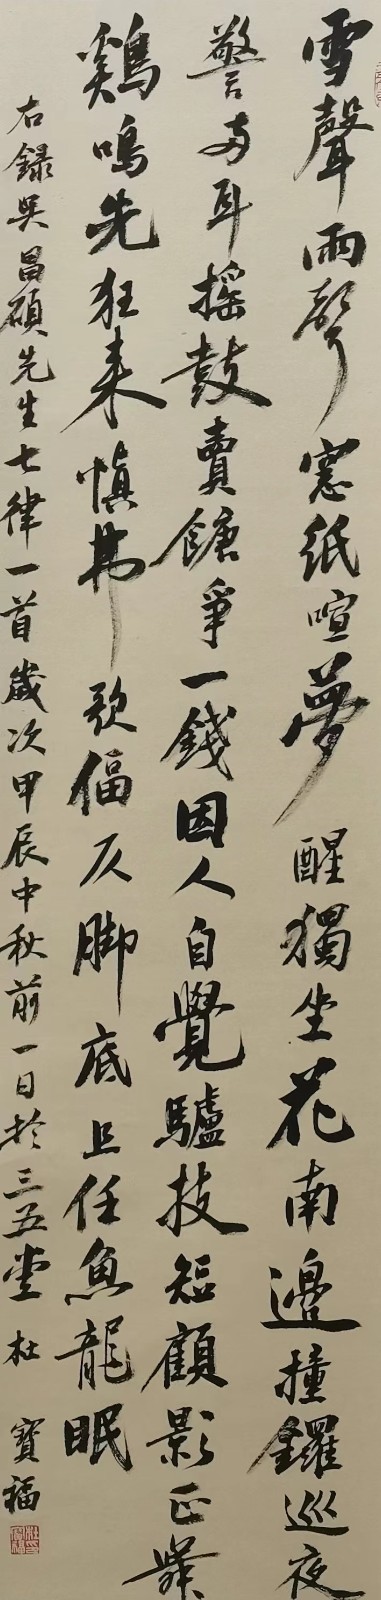 雪聲雨聲窓紙喧夢醒獨坐花南邊撞鑼巡夜
警兩耳搖鼓賣餹爭一錢因人自覺驢技短顧影正舞
鷄鳴先狂来慎弗歌偪仄脚底且任魚龍眠
右録吳昌碩先生七律一首歲次甲辰中秋前一日於三五堂 杜寶福